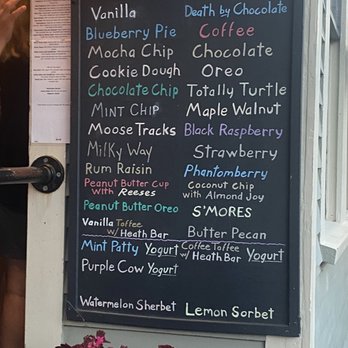 Vanilla
Blueberry Pie
Mocha Chip
Cookie Dough
Chocolate Chip
Mint Chip
Moose Tracks
Milky Way
Rum Raisin
Peanut Butter Cup
with Reeses
Peanut Butter Oreo
Vanilla Toffee
w/ Heath Bar
Mint Patty Yogurt
Purple Cow Yogurt
Watermelon Sherbet
Death by Chocolate
Coffee
Chocolate
Oreo
Totally Turtle
Maple Walnut
Black Raspberry
Strawberry
Phantomberry
Coconut Chip
with Almond Joy
S'MORES
Butter Pecan
Coffee Toffee
w/ Heath Bar Yogurt
Lemon Sorbet